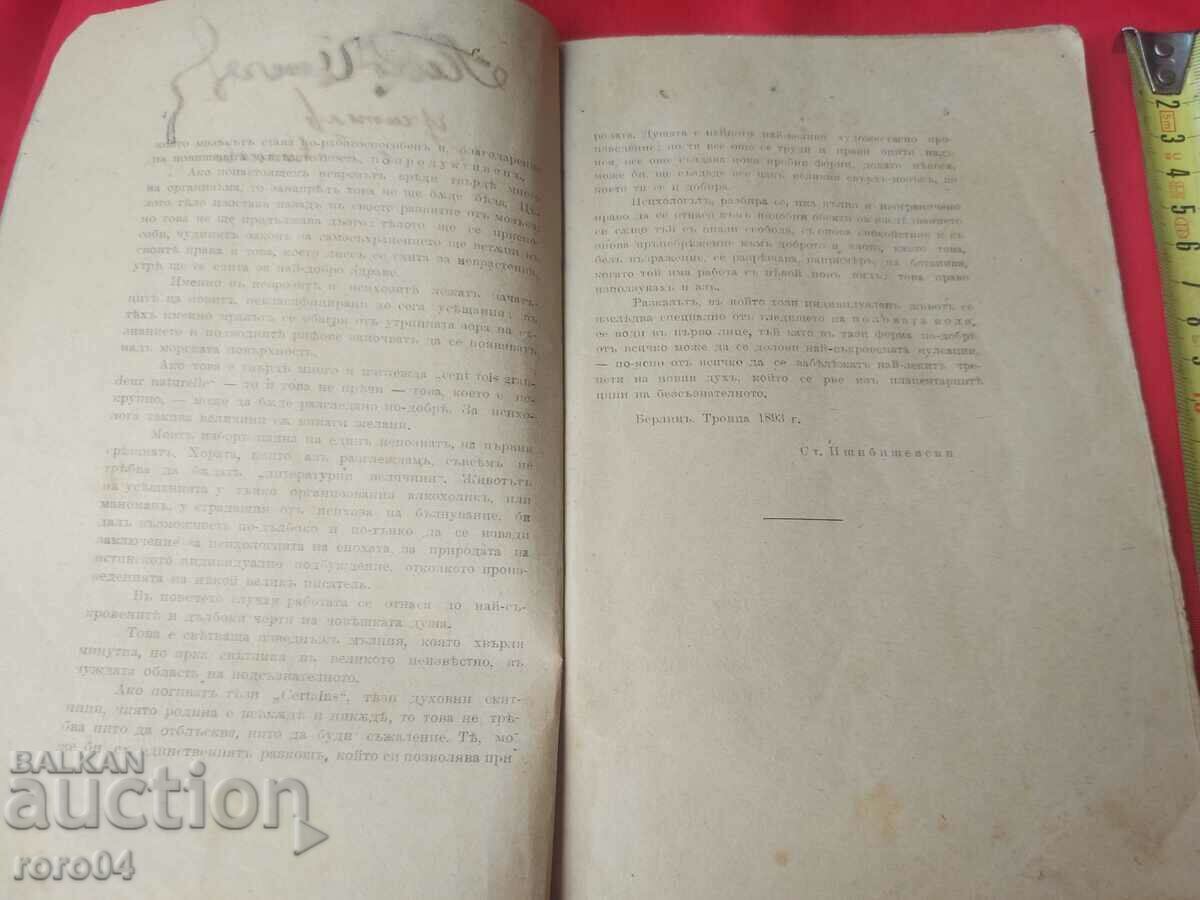 който мозъкът става по-работоспособен и, благодарение
на повишената чувствителность, по продуктивенъ.
Ако понастоящемъ неврозътъ врѣди твърдѣ много
на организма, то занапрѣдъ това не ще бѫде бѣда.
лото тѣло изостава назадъ въ своето развитие отъ мозъка,
но това не ще продължава дълго: тѣлото ще се приспо-
соби, чудниятъ законъ на самосъхранението ще встѫпи въ
своитѣ права и това, което днесъ се счита за неврастения,
утрѣ ще се счита за най-добро здраве.
Именно въ неврозитѣ и психозитѣ лежатъ зачатъ-
цитѣ на новитѣ, некласифицирани до сега усѣщания; въ
тѣхъ именно мракътъ се обагря отъ утринната зора на съ-
знанието и подводнитѣ рифове започватъ да се появяватъ
надъ морската повърхность.
Ако това е твърдѣ много и изглежда „cent fois gran-
deur naturelle“ — то и това не прѣчи — това, което е по-
крупно, — може да бѫде разгледано по-добрѣ. За психо-
лога такива величини сѫ винаги желани.
Моятъ изборъ падна на единъ непознатъ, на първия
срѣщнатъ. Хората, които азъ разглеждамъ, съвсѣмъ не
трѣбва да бѫдатъ „литературни величини“. Животътъ
на усѣщанията у тънко организования алкохоликъ, или
маноманъ, у страдащия отъ психоза на бълнуване, би
далъ възможность по-дълбоко и по-тънко да се извади
заключение за психологията на епохата, за природата на
истинското индивидуално подбуждение, отколкото произ-
веденията на нѣкой великъ писатель.
Въ повечето случаи работата се отнася до най-съ-
кровенитѣ и дълбоки черти на човѣшката душа.
Това е свѣтваща изведнъжъ мълния, която хвърля
минутна, но ярка свѣтлина въ великото неизвѣстно, въ
чуждата область на подсъзнателното.
Ако погиватъ тѣзи „Certains“, тѣзи духовни скит-
ници, чиято родина е всѣкждѣ и никждѣ, то това не трѣ-
бва нито да отблъсква, нито да буди съжаление. Тѣ, мо-
же би, сѫ единственнятъ разкошъ, който си позволява при
5
родата. Душата е нейното най-велико художествено про-
изведение; по тя все още се труди и прави опити надъ
нея, все още създава нови пробни форми, докато нѣкога,
може би, ще създаде все пакъ великия свръхъ-мозъкъ, до
което тя се и добира.
Психологътъ, разбира се, има пълно и неограничено
право да се отнася къмъ подобни обекти на изслѣдването
си сѫщо тъй съ онази свобода, съ онова спокойствие и съ
онова прѣнебрѣжение къмъ доброто и злото, както това,
безъ възражение, се разрѣшава, напримѣръ, на ботаника,
когато той има работа съ нѣкой новъ видъ; това право
използувахъ и азъ.
Разказътъ, въ който този индивидуаленъ животъ се
изслѣдва специално отъ гледището на половата воля,
се води въ първо лице, тъй като въ тази форма по-добрѣ
отъ всичко може да се долови най-съкровената пулсация,
— по-ясно отъ всичко да се забѣлѣжатъ най-лекитѣ тре-
пети на новия духъ, който се рве изъ плацентарнитѣ
ципи на безсъзнателното.
Берлинъ. Троица 1893 г.
Ст. Пшибишевски
BALKAN
auction
roro04